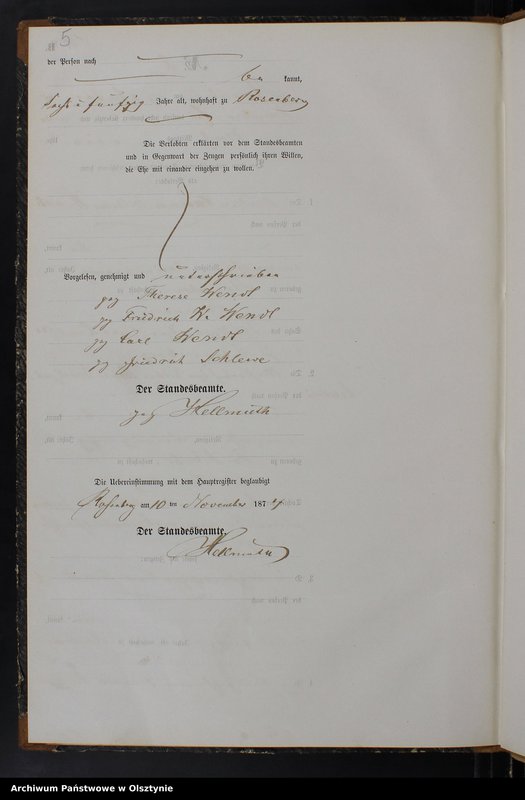 5
der Person nach
be kannt,
sechs u fünfzig Jahre alt, wohnhaft zu Rosenberg
Die Verlobten erklärten vor dem Standesbeamten
und in Gegenwart der Zeugen persönlich ihren Willen,
die Ehe mit einander eingehen zu wollen.
Vorgelesen, genehmigt und unterschrieben
gez Therese Wendt
gez Friedrich W. Wendt
gez Carl Wendt
gez Friedrich Schlewe
Der Standesbeamte.
gez Hellmuth
Die Uebereinstimmung mit dem Hauptregister beglaubigt
Rosenberg am 10 ten November 1874
Der Standesbeamte.
Hellmuth
Archiwum Państwowe w Olsztynie